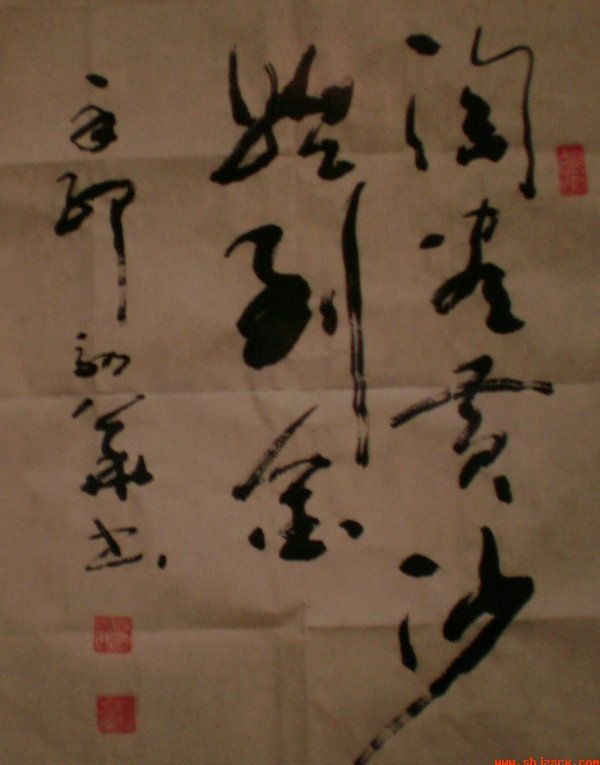 淘尽黄沙
始到金
辛卯 训华书
www.shjzscx.com